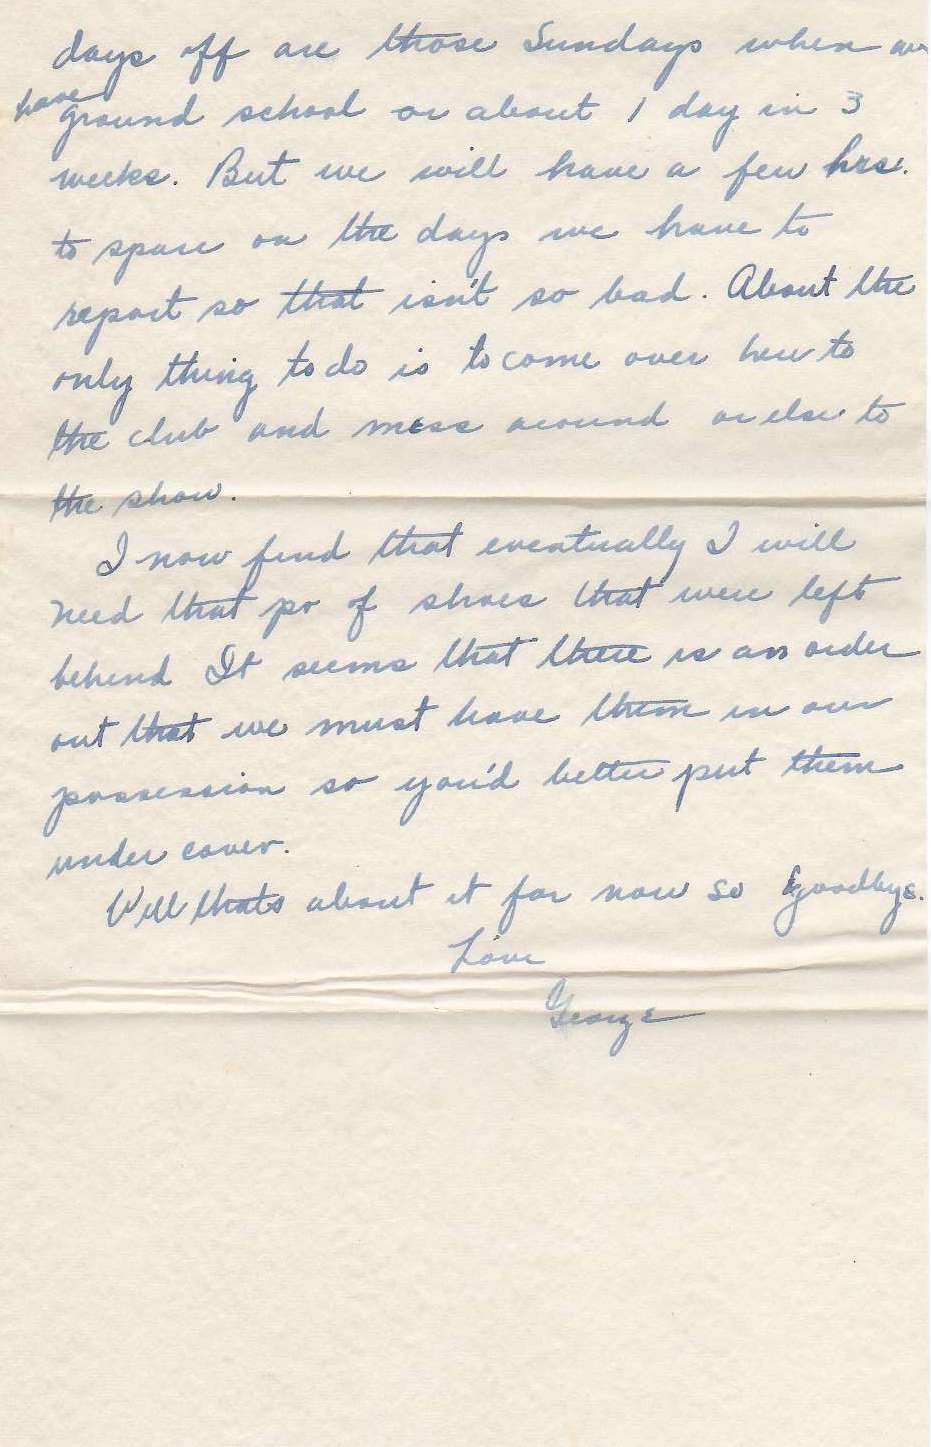 days off are those Sundays when we
have ground school or about 1 day in 3
weeks. But we will have a few hrs.
to spare on the days we have to
report so that isn't so bad. About the
only thing to do is to come over here to
the club and mess around or else to
the show.
I now find that eventually I will
need that pr of shoes that were left
behind It seems that there is an order
out that we must have them in our
possession so you'd better put them
under cover.
Well thats about it for now so goodbye.
Love
George